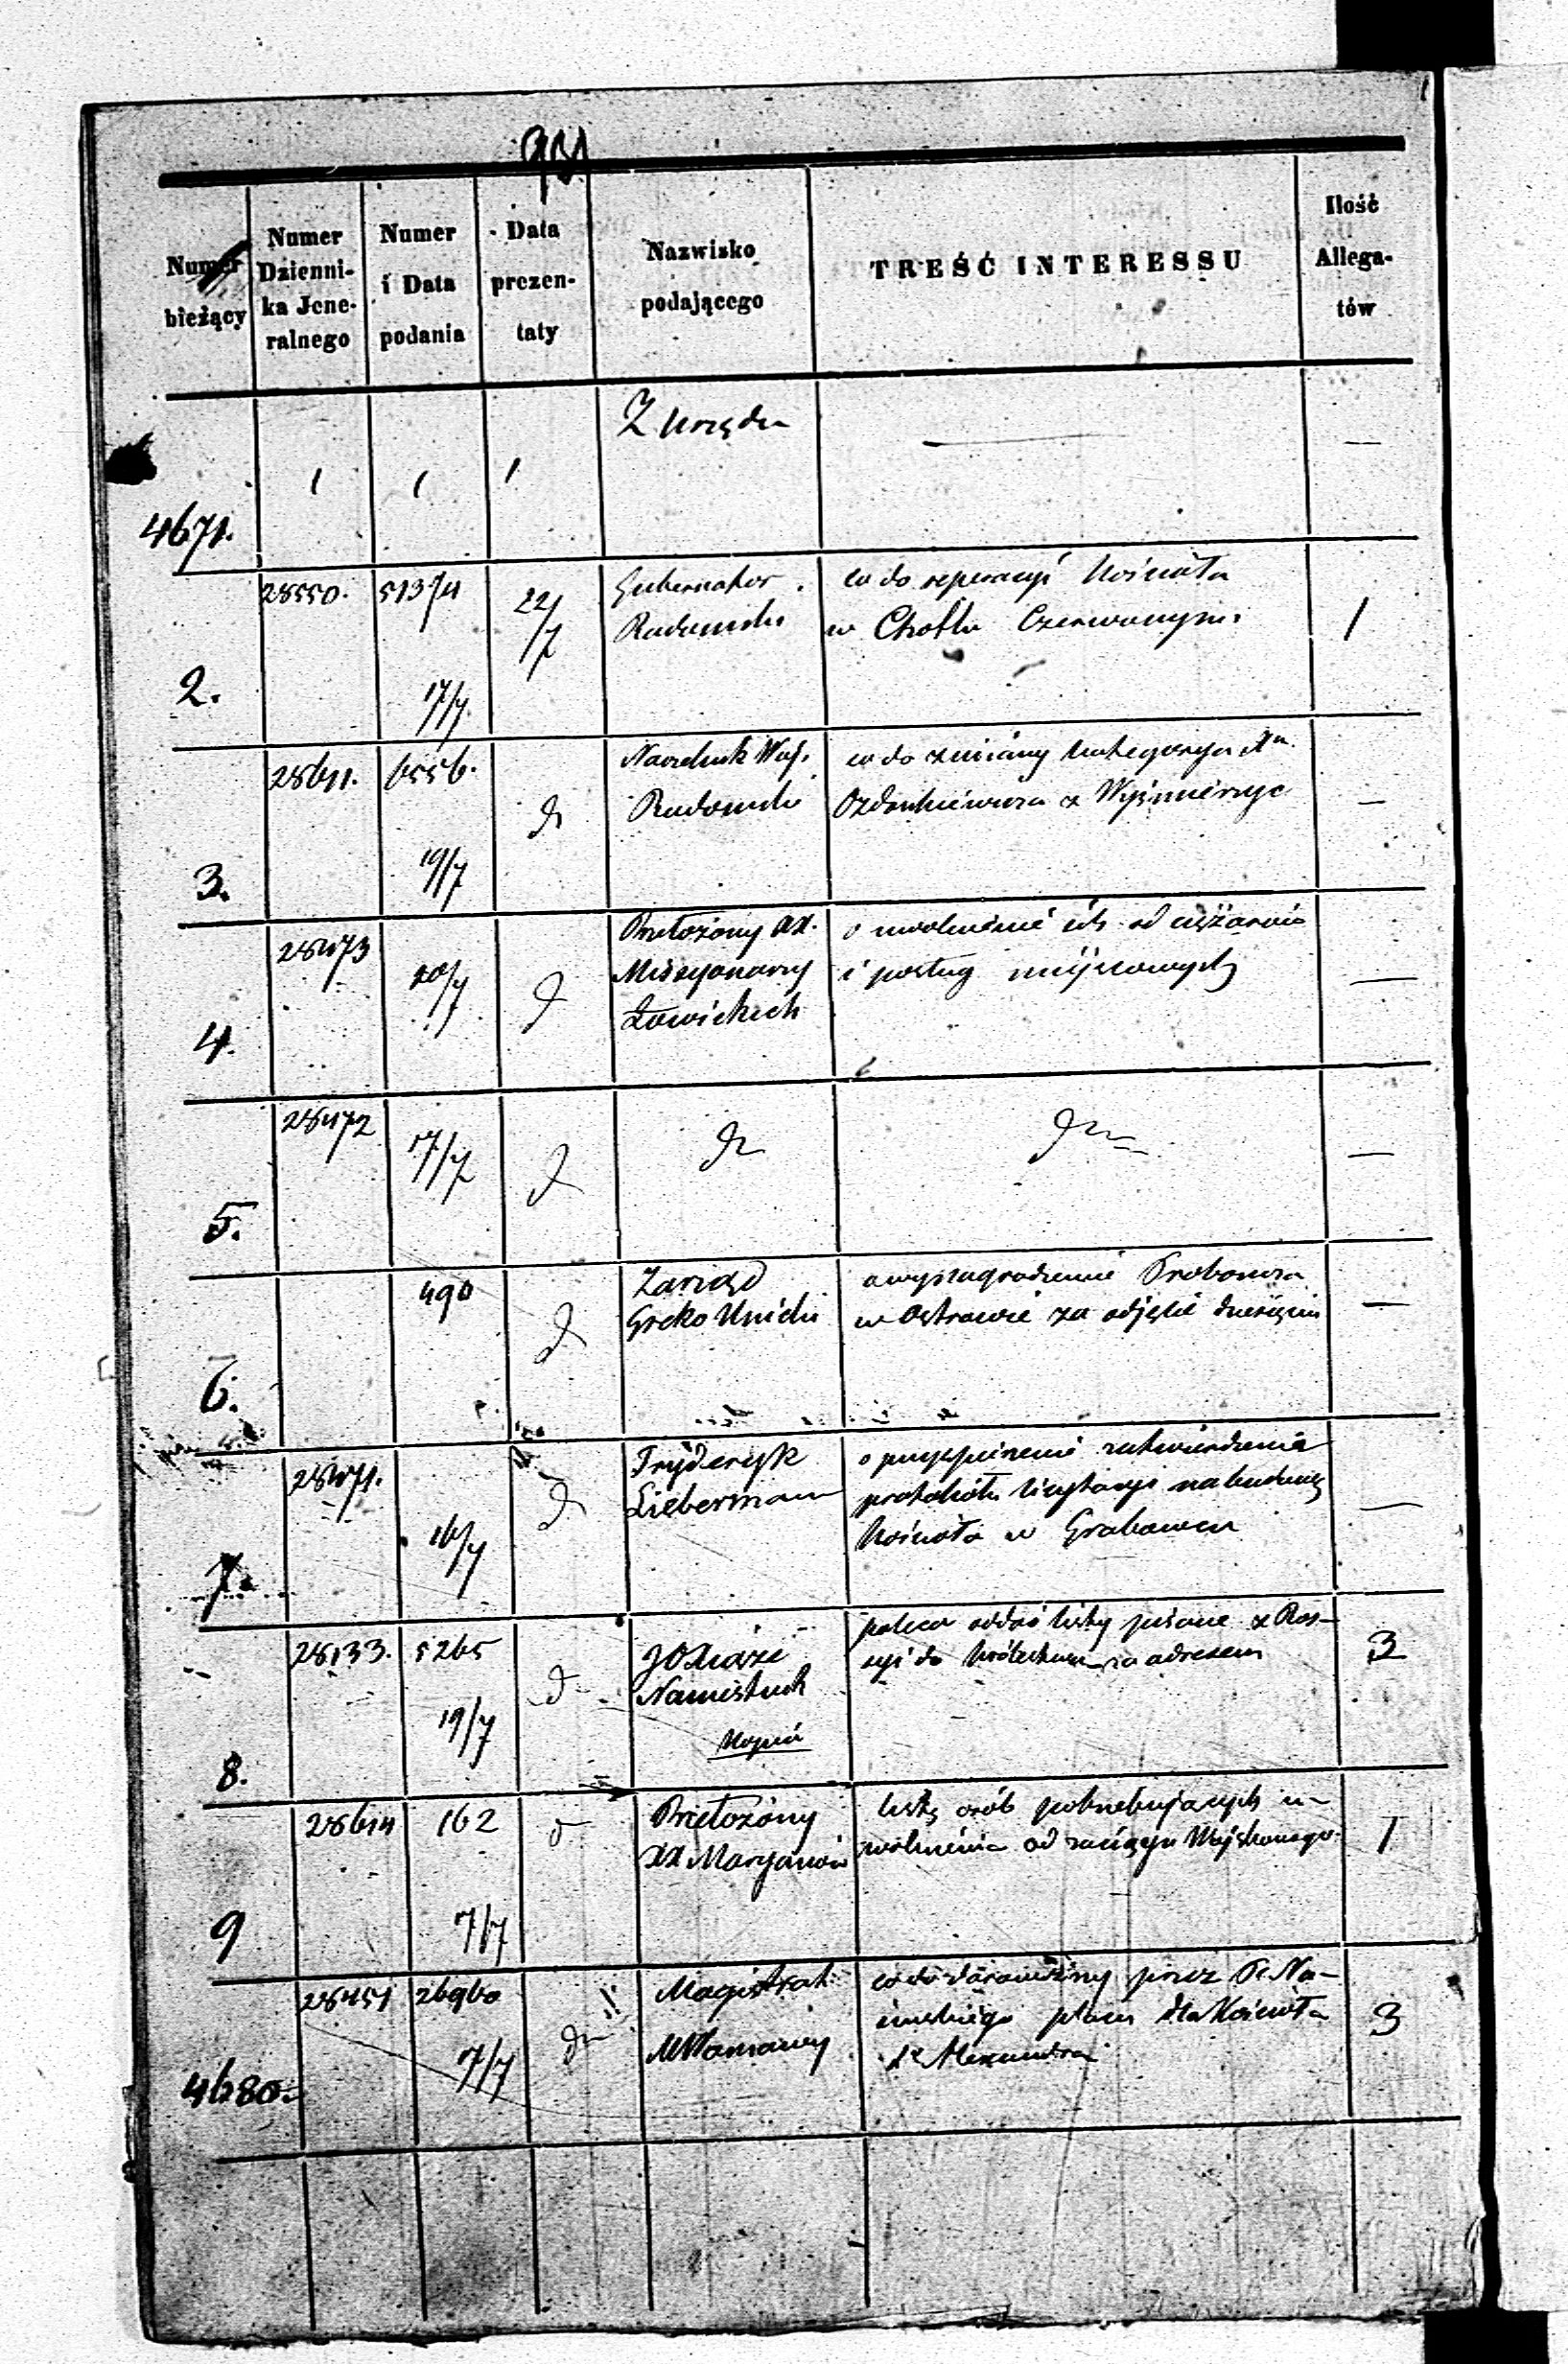 Numer
bieżący
Numer
Dzienni-
ka Jene-
ralnego
Numer
i Data
podania
Data
prezen-
taty
Nazwisko
podającego
TREŚĆ INTERESSU
Ilość
Allega-
tów
4671.
Z Urzędu
—
—
2.
28550.
17/7
22/7
Gubernator
Radomski
co do reperacyi Kościoła
w Chotlu Czerwonym.
1
3.
28611.
6556.
19/7
Naczelnik Woj.
Radomski
co do zmiany kategoryi Xa.
z Wyśmierzyc
—
4.
28473
20/7
Przełożony XX.
Missyonarzy
Łowickich
o uwolnienie ich od ciężarów
i posług miejscowych
—
5.
28472
17/7
—
6.
490
Zarząd
Greko Unicki
o wynagrodzenie Proboszcza
w Ostrowie za odjęcie dziesięcin
—
7.
28471.
16/7
Fryderyk
Liberman
o przyspieszenie zatwierdzenia
protokółu licytacyi na budowę
Kościoła w Grabowcu
—
8.
28133.
5265
19/7
JO Xiąże
Namiestnik
Kopia
poleca oddać listy pisane z Ros-
syi do Królestwa za adresem
3
9
28614
162
7/7
Przełożony
XX Maryanów
listę osób potrzebujących u-
wolnienia od zaciągu Wojskowego
1
4680.
28451
26960
7/7
Magistrat
M Warszawy
co do darowizny przez
placu dla Kościoła
Sgo Alexandra
3